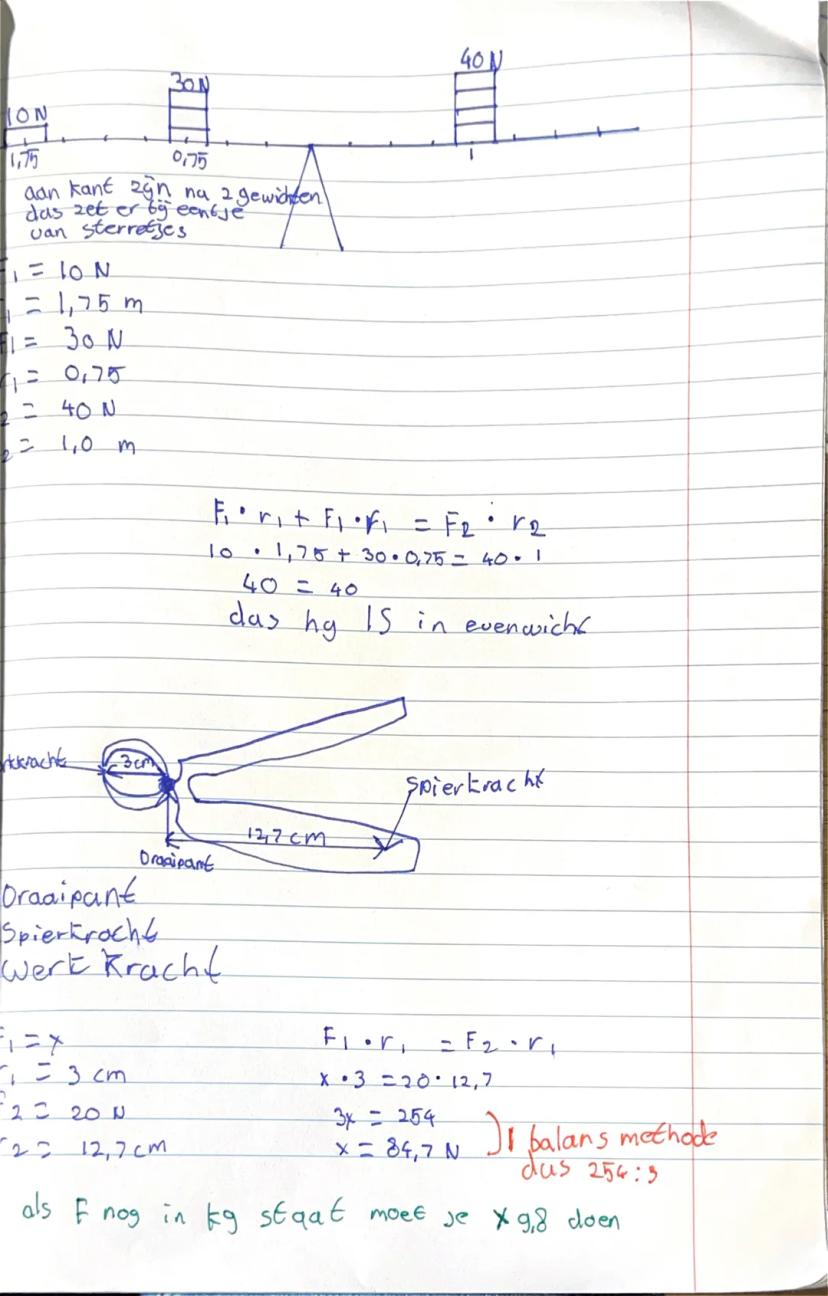 40 N
30N
10 N
1,75
0,75
1
aan kant zijn na 2 gewichten
das zet er bij eentje
van sterretjes
1 = 10 N
1 = 1,75 m
F1 = 30 N
r1 = 0,75
2 = 40 N
2 = 1,0 m
F1 • r1 + F1 • r1 = F2 • r2
10 • 1,75 + 30 • 0,75 = 40 • 1
40 = 40
das hy IS in evenwicht
rkkracht
3cm
Spierkracht
12,7 cm
Draaipant
Draaipant
Spierkracht
Werk Kracht
F1 = x
F1 • r1 = F2 • r1
r1 = 3 cm
x • 3 = 20 • 12,7
F2 = 20 N
3x = 254
balans methode
r2 = 12,7 cm
x = 84,7 N
dus 254 : 3
als F nog in kg staat moet je x 9,8 doen